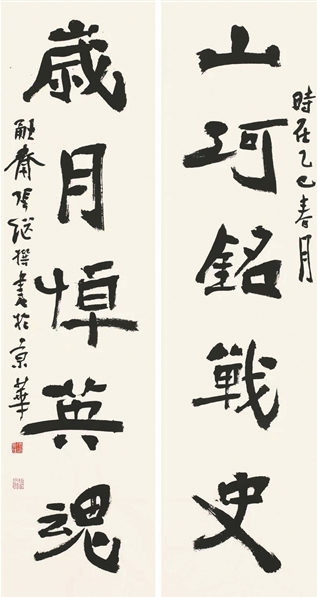 時在乙巳春月
山河銘戰史
歲月悼英魂
融齋張繼撰書於京華